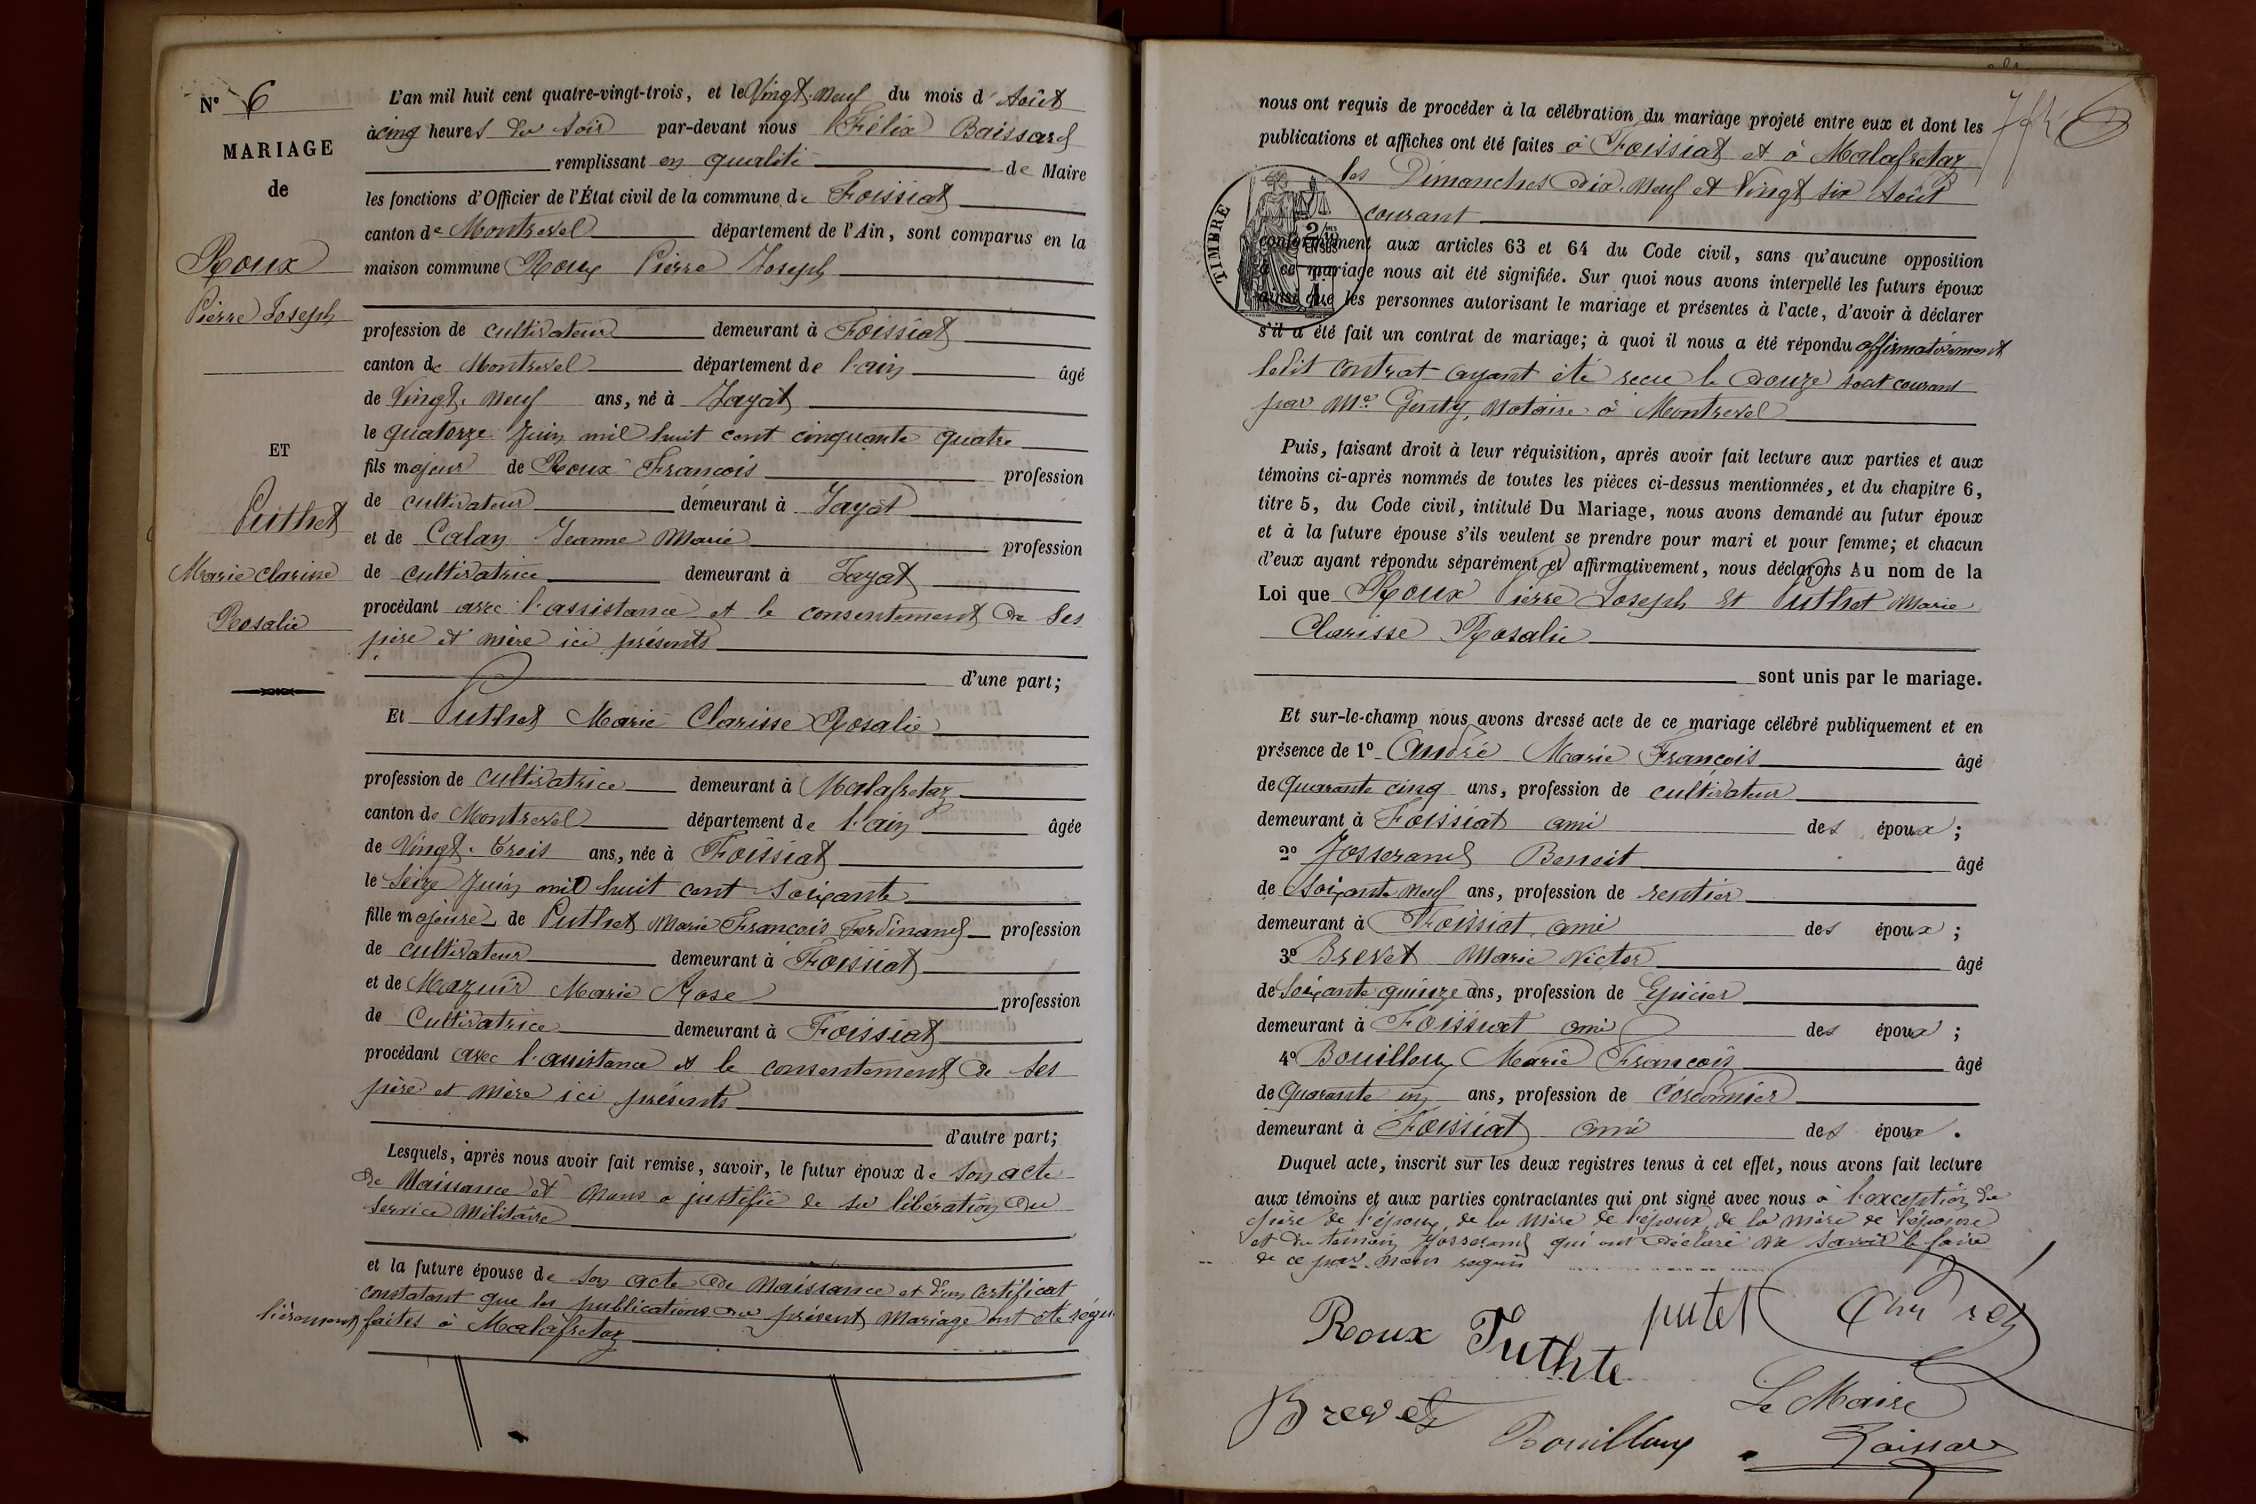 N° 6
MARIAGE
de
Roux
Pierre Joseph
ET
Puthet
Marie Clarisse
Rosalie
L'an mil huit cent quatre-vingt-trois, et le Vingt-Neuf du mois d'Août
à cinq heures du soir par-devant nous Félix Baissard
remplissant en qualité de Maire
les fonctions d'Officier de l'État civil de la commune de Foissiat
canton de Montrevel département de l'Ain, sont comparus en la
maison commune Roux Pierre Joseph
profession de cultivateur demeurant à Foissiat
canton de Montrevel département de l'ain âgé
de Vingt-Neuf ans, né à Jayat
le quatorze Juin mil huit cent cinquante quatre
fils majeur de Roux François profession
de cultivateur demeurant à Jayat
et de Calas Jeanne Marie profession
de cultivatrice demeurant à Jayat
procédant avec l'assistance et le consentement de ses
père et mère ici présents
d'une part;
Et Puthet Marie Clarisse Rosalie
profession de cultivatrice demeurant à Malafretaz
canton de Montrevel département de l'ain âgée
de Vingt-Trois ans, née à Foissiat
le Seize Juin mil huit cent soixante
fille majeure de Puthet Marie François Ferdinand profession
de cultivateur demeurant à Foissiat
et de Mazuir Marie Rose profession
de Cultivatrice demeurant à Foissiat
procédant avec l'assistance et le consentement de ses
père et mère ici présents
d'autre part;
Lesquels, après nous avoir fait remise, savoir, le futur époux de son acte
de Naissance et Nous a justifié de sa libération du
service Militaire
et la future épouse de son acte de Naissance et d'un Certificat
constatant que les publications du présent Mariage ont été régu-
lièrement faites à Malafretaz
nous ont requis de procéder à la célébration du mariage projeté entre eux et dont les
publications et affiches ont été faites à Foissiat et à Malafretaz
les Dimanches dix-Neuf et Vingt six Août
courant
TIMBRE
conformément aux articles 63 et 64 du Code civil, sans qu'aucune opposition
à ce mariage nous ait été signifiée. Sur quoi nous avons interpellé les futurs époux
ainsi que les personnes autorisant le mariage et présentes à l'acte, d'avoir à déclarer
s'il a été fait un contrat de mariage; à quoi il nous a été répondu affirmativement
ledit contrat ayant été reçu le Douze Août courant
par Me Genty, Notaire à Montrevel
Puis, faisant droit à leur réquisition, après avoir fait lecture aux parties et aux
témoins ci-après nommés de toutes les pièces ci-dessus mentionnées, et du chapitre 6,
titre 5, du Code civil, intitulé Du Mariage, nous avons demandé au futur époux
et à la future épouse s'ils veulent se prendre pour mari et pour femme; et chacun
d'eux ayant répondu séparément et affirmativement, nous déclarons Au nom de la
Loi que Roux Pierre Joseph Et Puthet Marie
Clarisse Rosalie
sont unis par le mariage.
Et sur-le-champ nous avons dressé acte de ce mariage célébré publiquement et en
présence de 1° André Marie François âgé
de Quarante cinq ans, profession de cultivateur
demeurant à Foissiat ami des époux;
2° Josserand Benoit âgé
de soixante Neuf ans, profession de rentier
demeurant à Foissiat ami des époux;
3° Brevet Marie Victor âgé
de Soixante quinze ans, profession de Epicier
demeurant à Foissiat ami des époux;
4° Bouilloux Marie François âgé
de Quarante un ans, profession de Cordonnier
demeurant à Foissiat ami des époux.
Duquel acte, inscrit sur les deux registres tenus à cet effet, nous avons fait lecture
aux témoins et aux parties contractantes qui ont signé avec nous à l'exception du
père de l'époux, de la Mère de l'époux, de la Mère de l'épouse
et du témoin Josserand qui ont déclaré ne savoir le faire
de ce par Nous requis
Roux Puthte putet André
Brevet Bouilloux Le Maire
Baissard